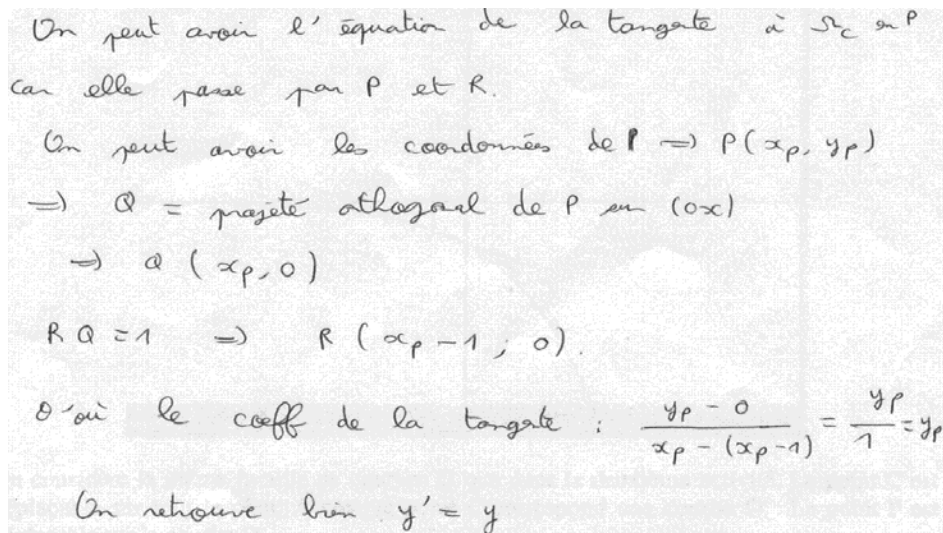 On peut avoir l'équation de la tangente à Ωc en P
car elle passe par P et R.
On peut avoir les coordonnées de P ⇒ P(xp, yp)
⇒ Q = projeté othogonal de P sur (ox)
⇒ Q (xp, 0)
RQ = 1 ⇒ R (xp - 1 ; 0).
D'où le coeff de la tangente : (yp - 0) / (xp - (xp - 1)) = yp / 1 = yp
On retrouve bien y' = y